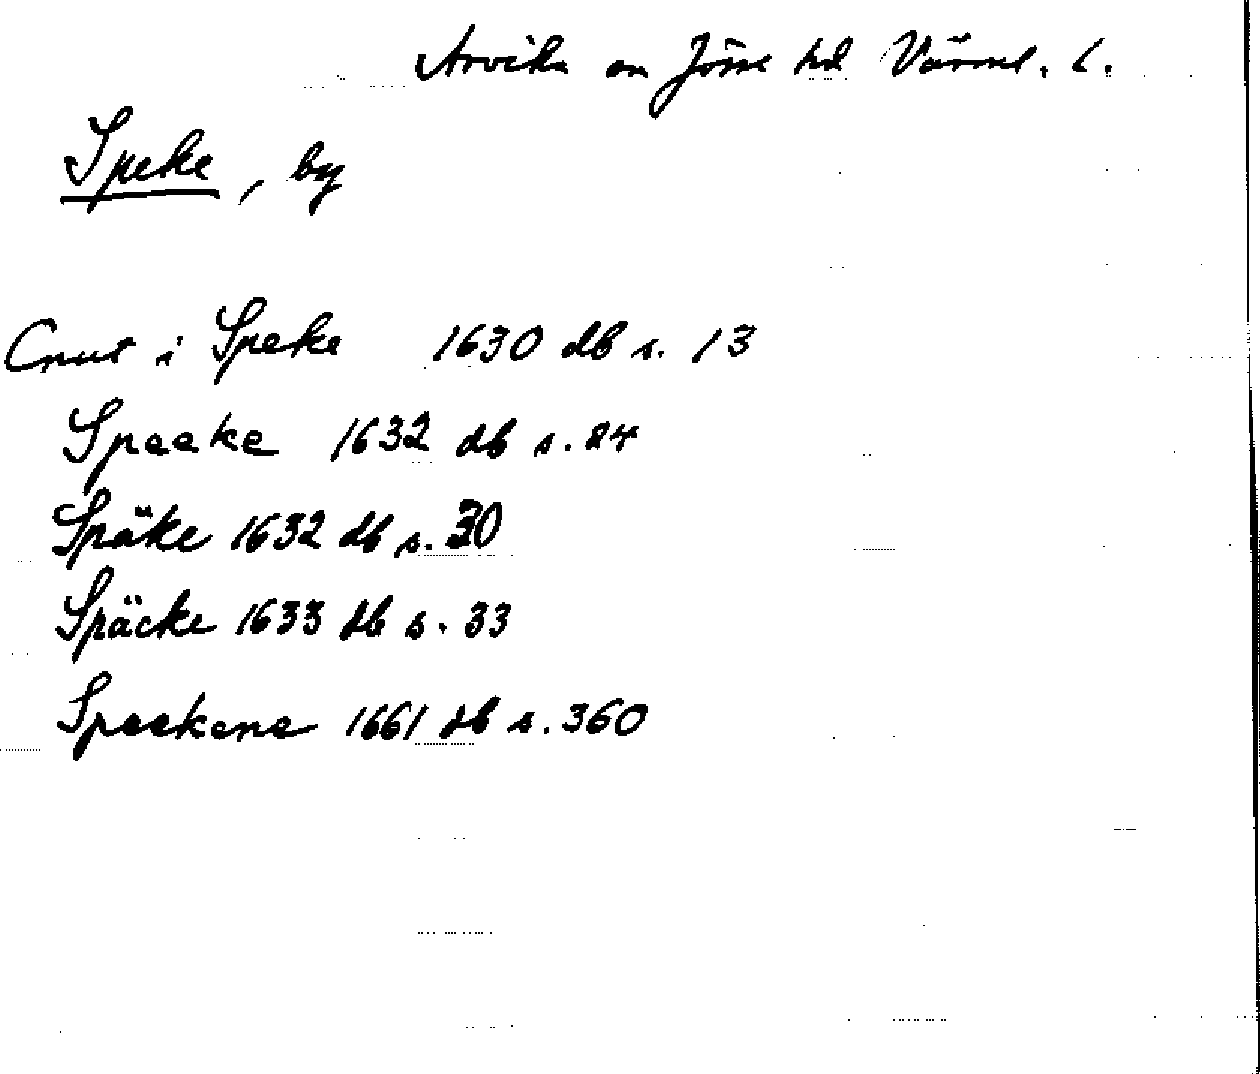 Arvika sn Jösse hd Värml. l.
Speke, by
Cnut i Speke 1630 db s. 13
Speeke 1632 db s. 24
Späke 1632 db s. 30
Späcke 1633 db s. 33
Speekene 1661 db s. 360